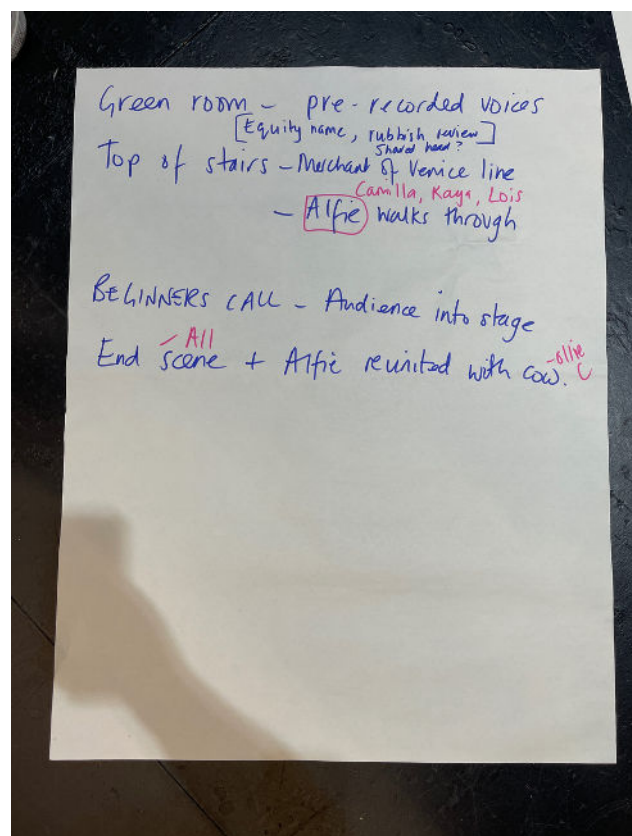 Green room – pre-recorded voices
[Equity name, rubbish review]
Shared head?
Top of stairs – Merchant of Venice line
Camilla, Kaya, Lois
– Alfie walks through
BEGINNERS CALL – Audience into stage
– All
– Ollie C
End scene + Alfie reunited with cow.